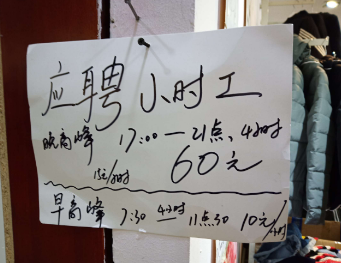 应聘小时工
晚高峰 17:00—21点, 4小时
15元/小时 60元
早高峰 7:30 4小时 — 11点30 10元/小时